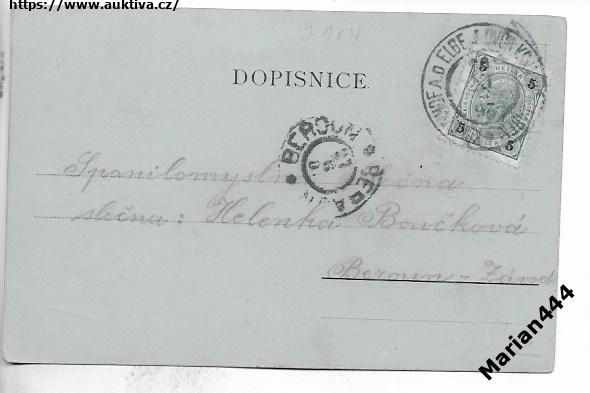 https://www.auktiva.cz/
9104
DOPISNICE
5 5
5 5
BEROUN
Spanilomyslná slečna
slečna: Helenka Boučková
Beroun - Závod
Marian444